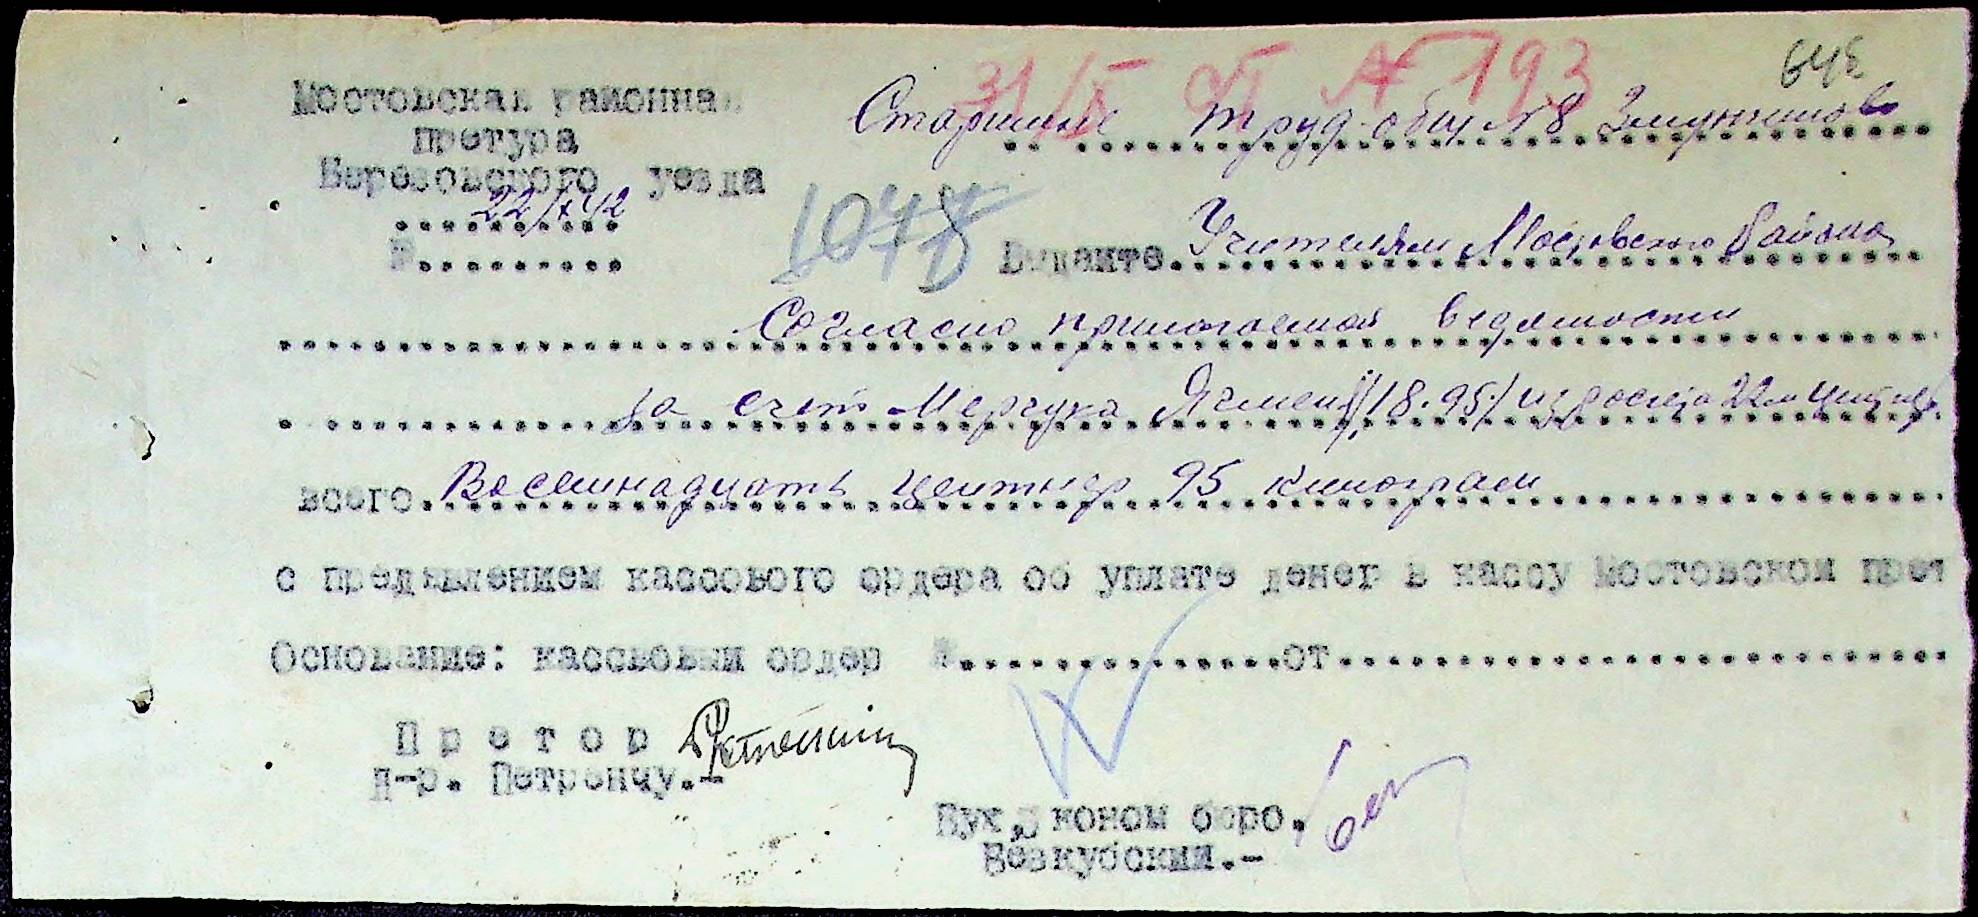 31/X от № 193
648
Мостовская районная
претура
Березовского уезда
22/X 42
№..........
Старшине труд. общ №8
1078
Выдайте. Учителям Мостовского района
Согласно прилогаемой ведомости
за счет Мерчука Ячмень /18.95/ из 22м
всего. Восемнадцать центнер 95 килограм
с предявлением кассового ордера об уплате денег в кассу Мостовской прет
Основание: кассвовый ордер №..............от............................
Претор
Д-р. Петренчу.-
Бух,эконом бюро.
Безкубский.-